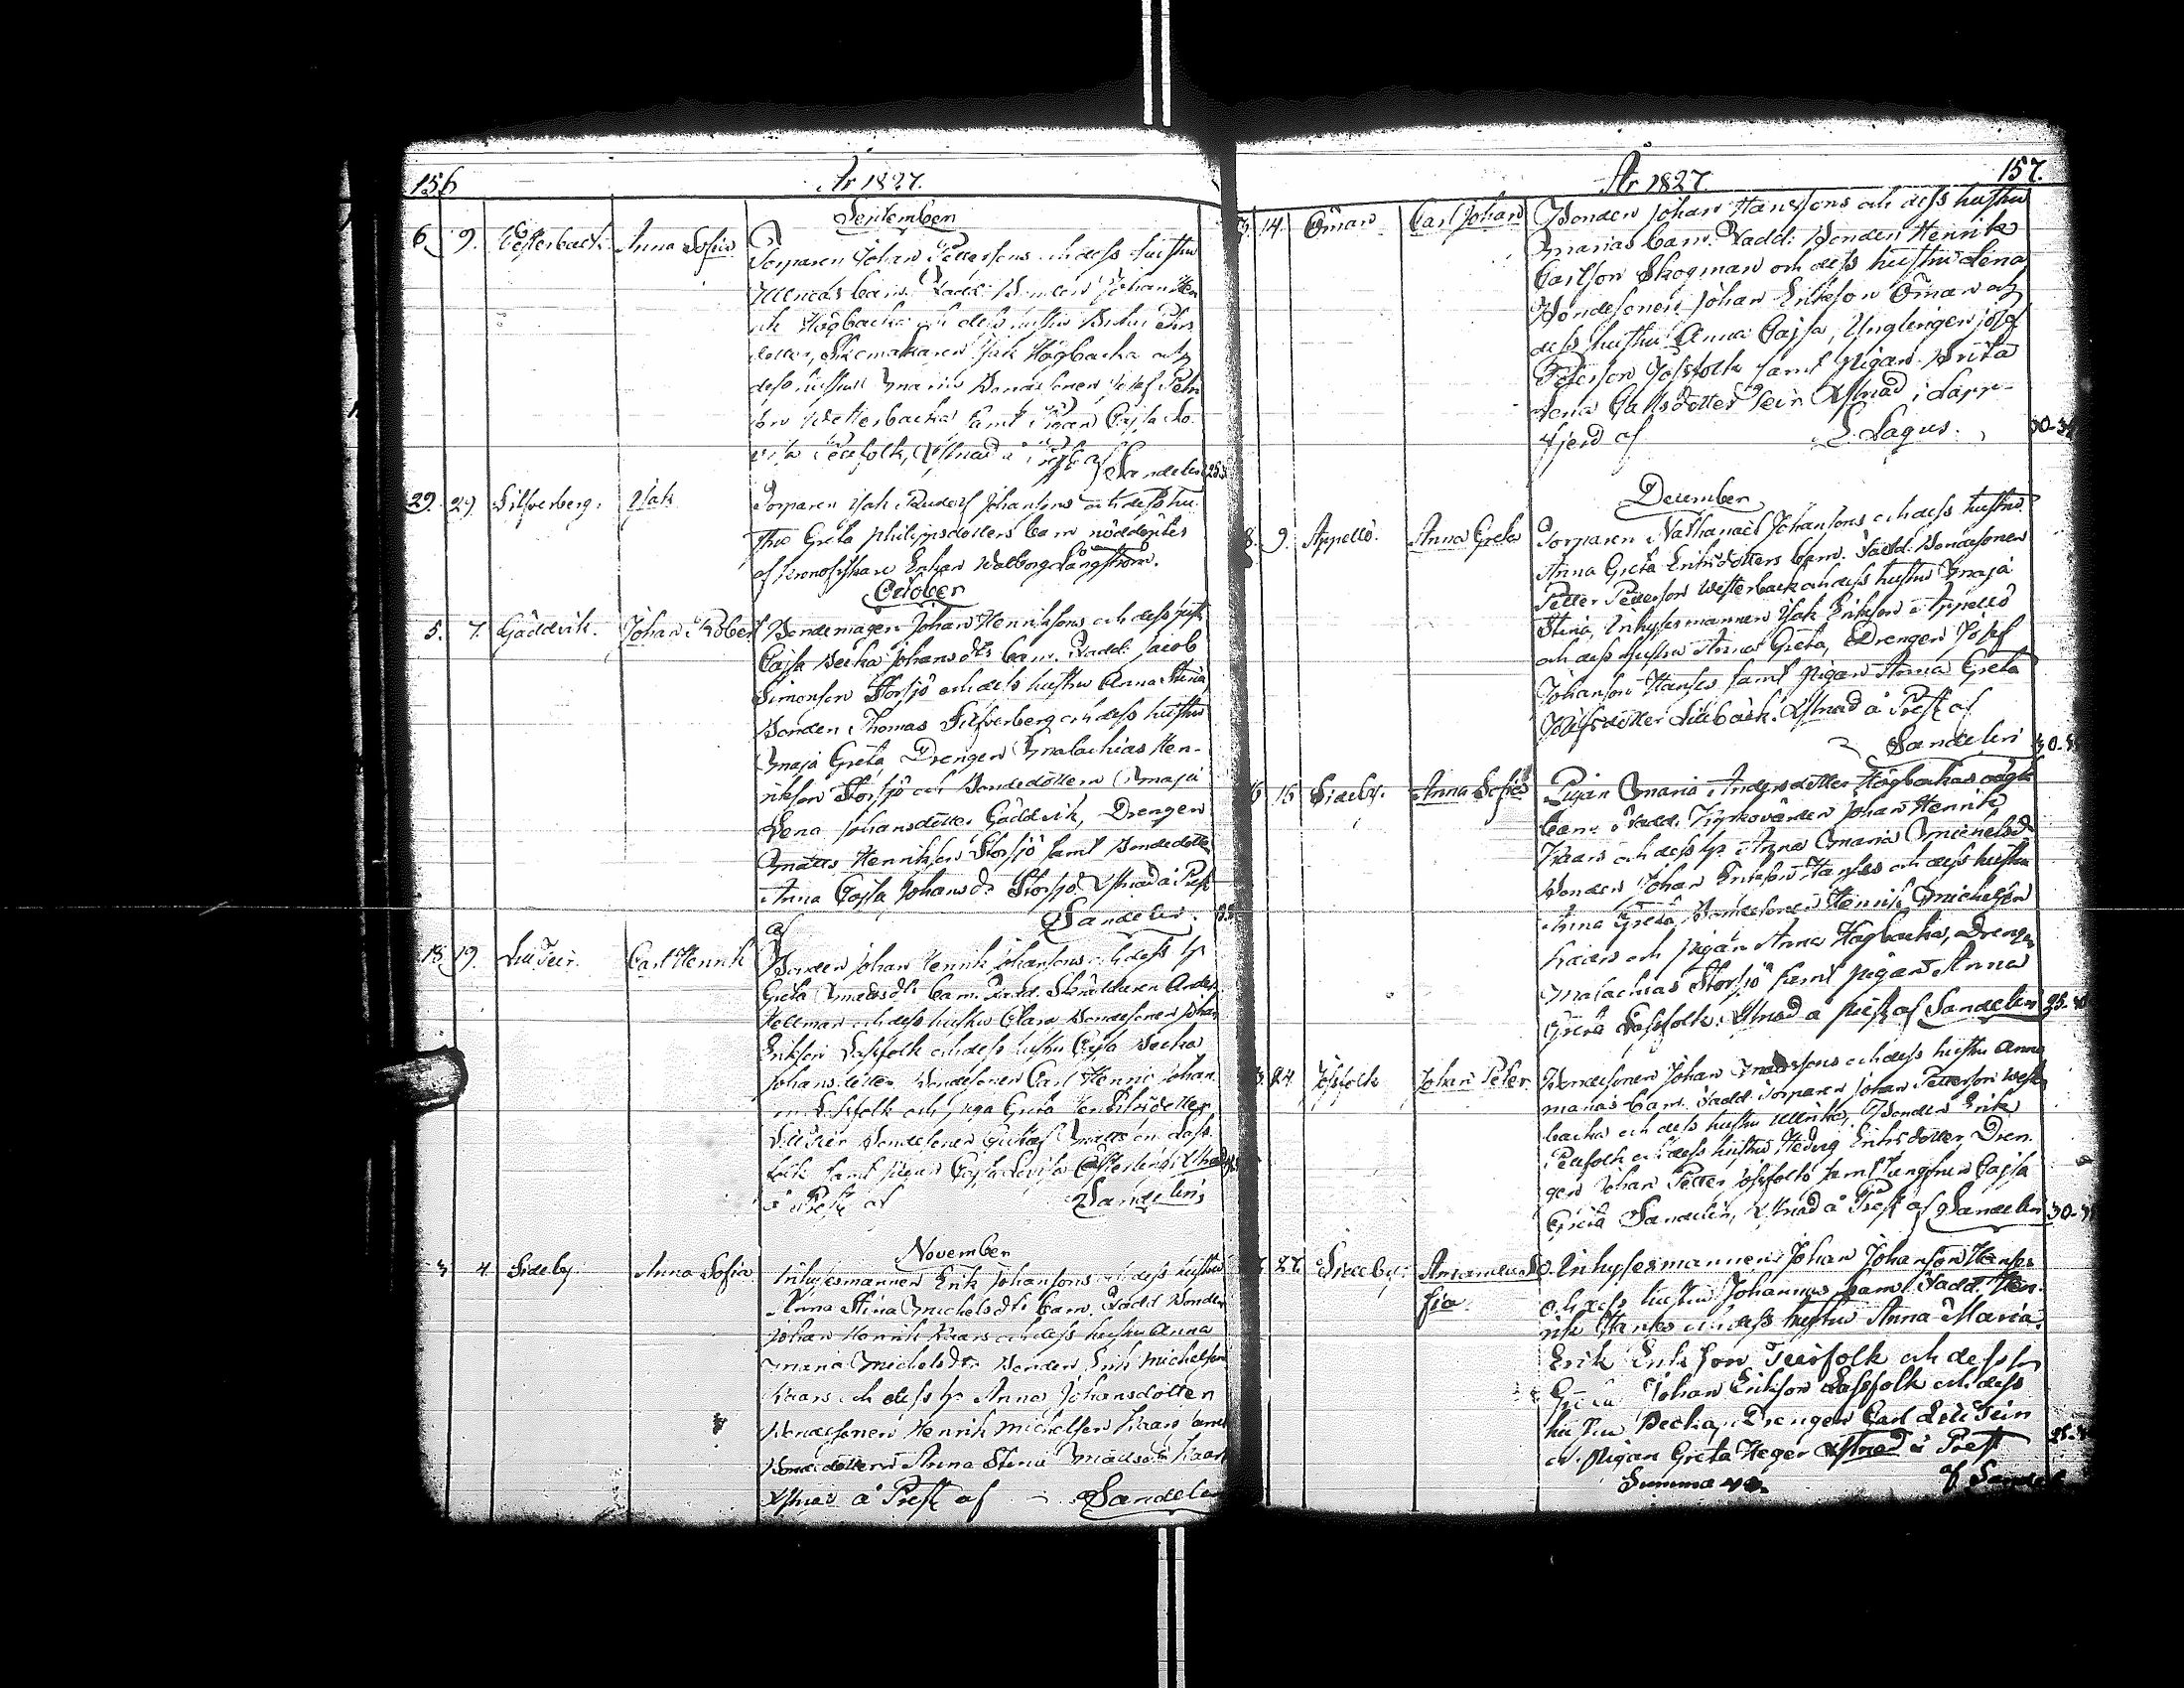 156
År 1827.
September
6. 9. Westerback. Anna Sofia
Torparen Johan Pettersons och dess hustru
Ullricas barn. Fadd: Bonden Johan Hen
rik Högbacka och dess hustru Brita Pehrs
dotter, Skomakaren Isak Högbacka och
dess hustru Maria Bondesonen Josef Pehr
son Westerbacka samt Pigan Cajsa Lo
visa Peufolk, Xstnad å Prest af Sandelin
29. 29. Silfverberg. Isak
Torparen Isak Rudolf Johansons och dess hu
stru Greta Philippsdotters barn nöddöptes
af Kronofiskare Enkan Walborg Långström.
October
5. 7. Gäddvik. Johan Robert
Bondemagen Johan Henriksons och dess hustr
Cajsa Becka Johansdtrs barn. Fadd: Jacob
Simonson Storsjö och dess hustru Anna Stina
Bonden Thomas Silfverberg och dess hustru
Maja Greta Drengen Malachias Hen-
rikson Storsjö och Bondedottern Maja
Lena Johansdotter Gäddvik, Drengen
Matts Henrikson Storsjö samt Bondedotter
Anna Cajsa Johansdr Storsjö. Xstnad å Prest
af Sandelin.
18. 19. Lill Teir. Carl Henrik
Bonden Johan Henrik Johansons och dess h
Greta Mattsdtr barn. Fadd. Skräddaren Anders
Hellman och dess hustru Clara Bondesonen Johan
Erikson Lassfolk och dess hustru Cajsa Becka
Johansdotter Bondesonen Carl Henric Johan
son Lassfolk och piga Greta Henriksdotter
Lillteir Bondesonen Gustaf Mattson Lass
folk samt pigan Cajsa Lovisa Österlund Xstnad
å Prest af Sandelin
November
3 4 Sideby Anna Sofia
Inhysesmannen Erik Johansons och dess hustru
Anna Stina Michelsdtr barn. Fadd Bonden
Johan Henrik Kaars och dess hustru Anna
Maria Michelsdtr Bonden Erik Michelson
Kaars och dess h Anna Johansdotter
Bondesonen Henrik Michelson Kaars samt
Bondedottern Anna Stina Mattsdr Kaars
Xstnad å Prest af Sandelin
157.
År 1827
14. Öman Carl Johan
Bonden Johan Hansons och dess hustru
Marias barn. Fadd: Bonden Henrik
Carlson Skogman och dess hustru Lena
Bondesonen Johan Erikson Öman och
dess hustru Anna Cajsa, Ynglingen Josef
Peterson Josfolk samt Pigan Brita
Lena Carlsdotter Teir Xstnad i Lapp-
fjerd af L. Lagus.
December
8. 9. Appellö. Anna Greta
Torparen Nathanael Johansons och dess hustru
Anna Greta Eriksdotters barn. Fadd: Bondesonen
Petter Petterson Westerback och dess hustru Maja
Stina, Inhysesmannen Isak Erikson Appellö
och dess hustru Anna Greta, Drengen Josef
Johanson Hanses samt Pigan Anna Greta
Josefsdotter Lillback. Xstnad å Prest af
Sandelin
15 Sideby. Anna Sofia
Pigan Maria Andersdotter Högbackas oägta
barn. Fadd. Kyrkovärden Johan Henrik
Kaars och dess h. Anna Maria Michelsd
Bonden Johan Erikson Hanses och dess hustru
Anna Greta, Bondesonen Henrik Michelson
Kaars och pigan Anna Högbacka, Drengen
Malachias Storsjö samt pigan Anna
Greta Lassfolk. Xstnad å prest af Sandelin
24. Josfolk Johan Peter.
Bondesonen Johan Mattsons och dess hustru Anna
Marias barn. Fadd: Torparen Johan Petterson West
backa och dess hustru Ullrika, Bonden Erik
Peufolk och dess hustru Hedvig Eriksdotter Dren
gen Johan Petter Josfolk samt Jungfrun Cajsa
Greta Sandelin, Xstnad å Prest af Sandelin
27. Sideby. Annamaria So
fia.
Inhysesmannen Johan Johanson Hanses
och dess hustru Johannas barn. Fadd. Hen
rik Hanses och dess hustru Anna Maria.
Erik Erikson Teirfolk och dess h
Greta Johan Erikson Lassfolk och dess
hustru Becka, Drengen Carl Lill Teir
och Pigan Greta Heger Xstnad å Prest
Summa af Sandelin